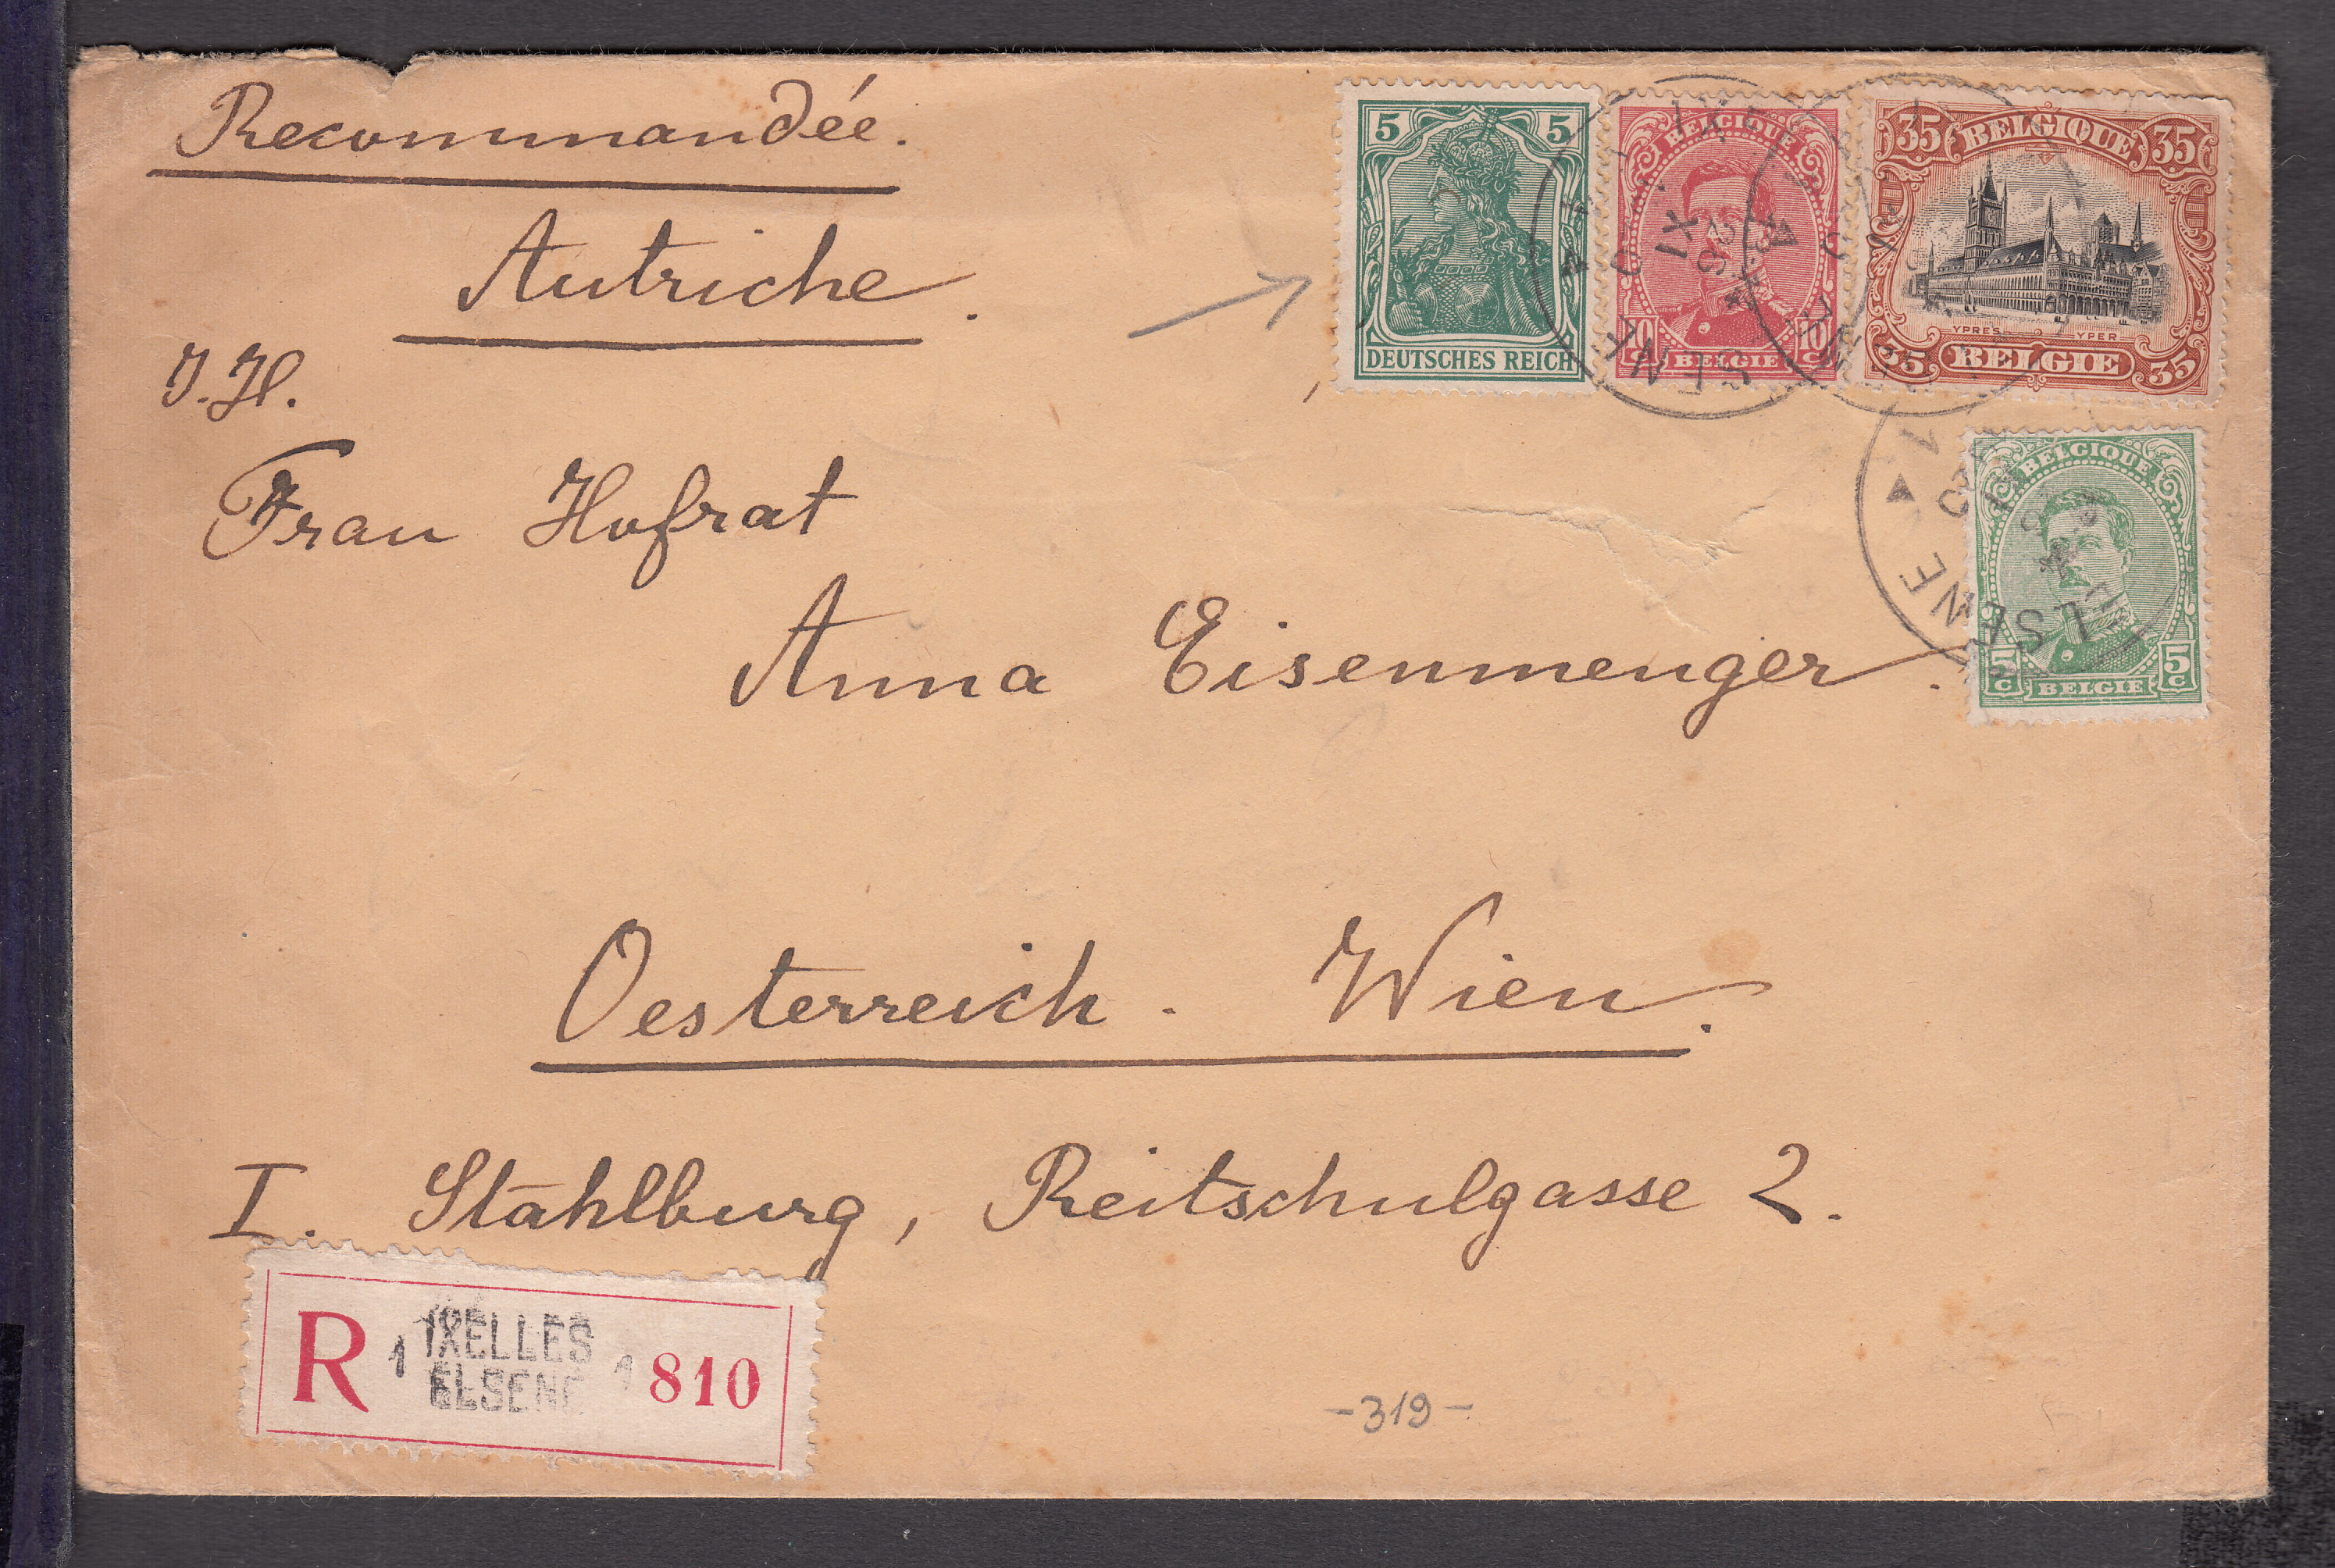 Recommandée.
Autriche.
I. H.
Frau Hofrat
Anna Eisenmenger.
Oesterreich. Wien.
I. Stahlburg, Reitschulgasse 2.
5 5
DEUTSCHES REICH
BELGIQUE
10 C BELGIE 10 C
35 BELGIQUE 35
YPRES YPER
35 BELGIE 35
BELGIQUE
5 C BELGIE 5 C
ELSENE
R 1 IXELLES 1 810
ELSENE
-319-